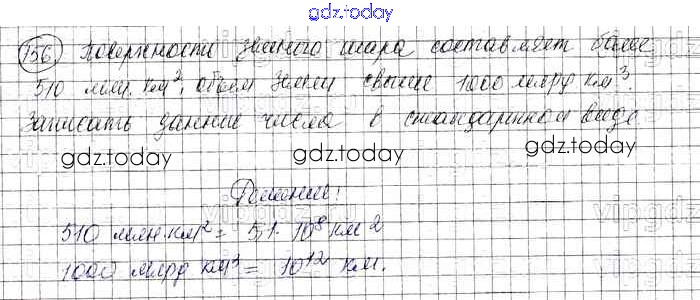 gdz.today
156 Поверхности земного шара составляет более
510 млн. км², объем Земли свыше 1000 млрд км³.
Записать данные числа в стандартном виде
gdz.today gdz.today gdz.today
Решение:
510 млн. км² = 5,1 · 10⁸ км 2
1000 млрд км³ = 10¹² км.